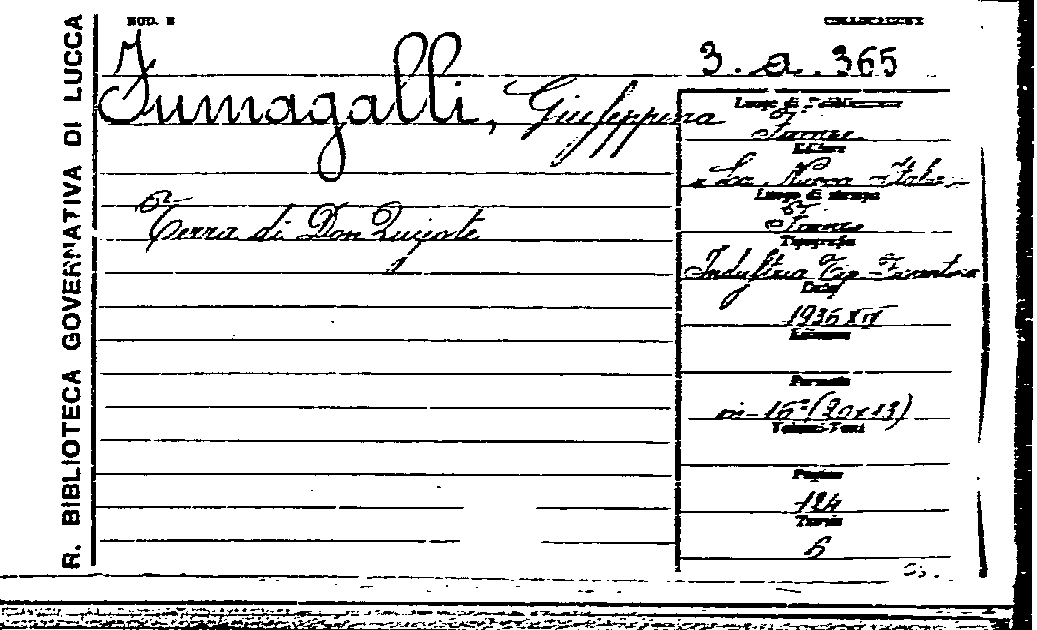 R. BIBLIOTECA GOVERNATIVA DI LUCCA
MOD.
COLLOCAZIONE
3. a. 365
Fumagalli, Giuseppina
Terra di Don Quijote
Luogo di Pubblicazione
Firenze
Editore
"La Nuova Italia"
Luogo di stampa
Firenze
Tipografia
Industria Tip. Fiorentina
Data
1936 XIV
Edizione
Formato
in-16° (20x13)
Volumi-Tomi
Pagine
124
Tavole
6